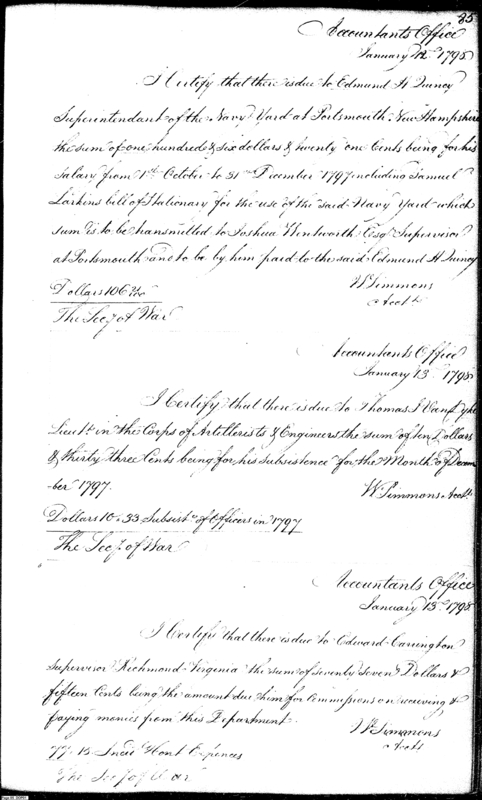 35
Accountants Office
January 12th 1798
I Certify that there is due to Edmund H Quincy
Superintendant of the Navy Yard at Portsmouth New Hampshire
the sum of one hundred & six dollars & twenty one Cents being for his
Salary from 1st October to 31st December 1797 including Samuel
Larkins bill of Stationary for the use of the said Navy Yard which
sum is to be transmitted to Joshua Wentworth Esqr Supervisor
at Portsmouth and to be by him paid to the said Edmund H Quincy
W Simmons
Acct
Dollars 106 21/100
The Secy of War
Accountants Office
January 13th 1798
I Certify that there is due to Thomas J Van
Lieut in the Corps of Artillerists & Engineers the sum of ten Dollars
& thirty three Cents being for his subsistence for the Month of Decem
-ber 1797.
W Simmons Acct
Dollars 10..33 Subsist. of Officers in 1797
The Secy of War
Accountants Office
January 13th 1798
I Certify that there is due to Edward Carrington
Supervisor Richmond Virginia the sum of seventy seven Dollars &
fifteen Cents being the amount due him for Commissions on receiving &
paying monies from this Department.
Wm Simmons
Acct
77.15 Indn Cont Expences
The Secy of War